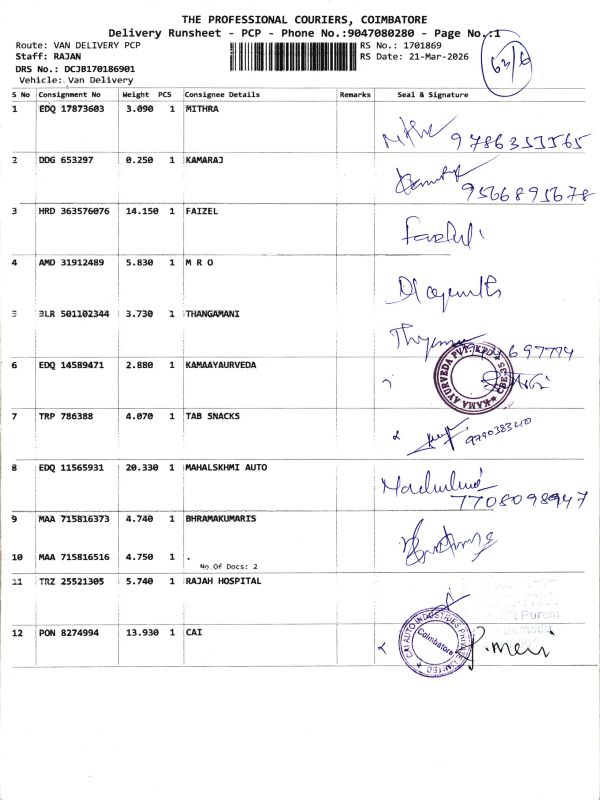 THE PROFESSIONAL COURIERS, COIMBATORE
Delivery Runsheet - PCP - Phone No.:9047080280 - Page No.:1
Route: VAN DELIVERY PCP RS No.: 1701869
Staff: RAJAN RS Date: 21-Mar-2026
DRS No.: DCJB170186901
Vehicle: Van Delivery
63/6
S No Consignment No Weight PCS Consignee Details Remarks Seal & Signature
1 EDQ 17873603 3.090 1 MITHRA
9786353565
2 DDG 653297 0.250 1 KAMARAJ
9566895678
3 HRD 363576076 14.150 1 FAIZEL
4 AMD 31912489 5.830 1 M R O
5 BLR 501102344 3.730 1 THANGAMANI
6 EDQ 14589471 2.880 1 KAMAAYAURVEDA
KAMA AYURVEDA PVT. LTD. CBE
7 TRP 786388 4.070 1 TAB SNACKS
9790383340
8 EDQ 11565931 20.330 1 MAHALSKHMI AUTO
7708098947
9 MAA 715816373 4.740 1 BHRAMAKUMARIS
10 MAA 715816516 4.750 1 .
No.Of Docs: 2
11 TRZ 25521305 5.740 1 RAJAH HOSPITAL
Puram
12 PON 8274994 13.930 1 CAI
CAI AUTO INDUSTRIES PRIVATE LIMITED
Coimbatore